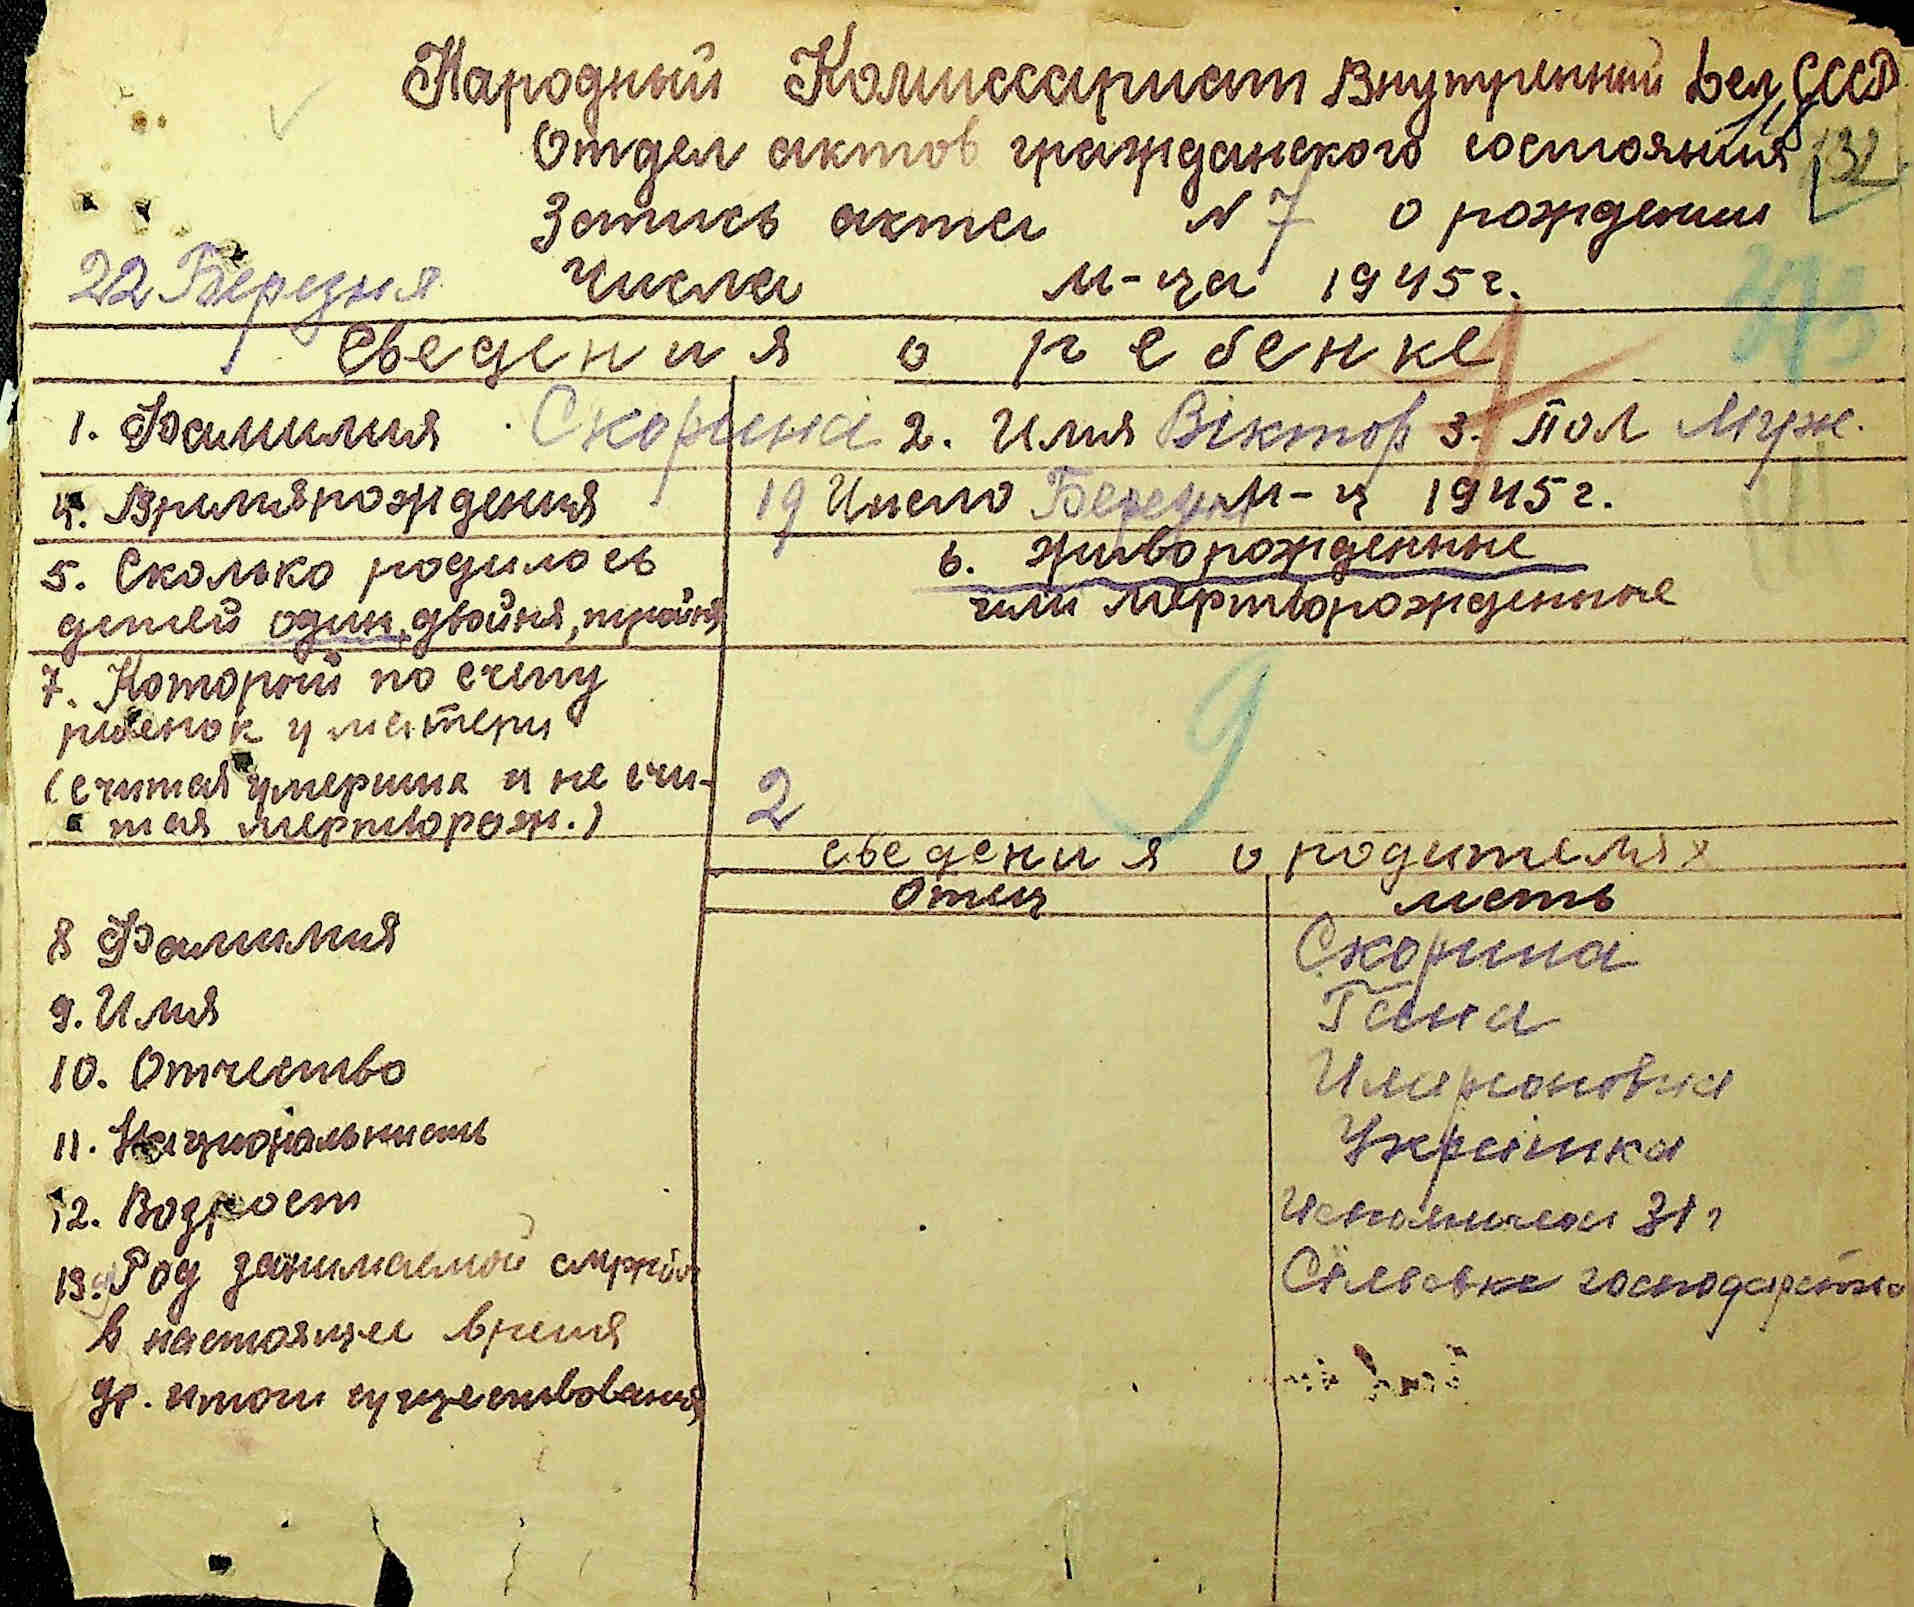 Народный Комиссариат Внутренний Дел СССР
Отдел актов гражданского состояния 132
Запись акта N 7 о рождении
22 Березня числа м-ца 1945 г.
Сведения о ребенке
1. Фамилия Скорина 2. Имя Віктор 3. Пол Муж.
4. Время рождения 19 Число Березня м-ц 1945 г.
5. Сколько родилось
детей один, двойня, тройня
6. живорожденные
или мертворожденные
7. Который по счету
ребенок у матери
(считая умерших и не счи-
тая мертворож.) 2
9
сведения о родителях
Отец мать
8 Фамилия Скорина
9. Имя Гана
10. Отчество Иларионовна
11. Национальность Українка
12. Возраст 31 г
13. Род занимаемой службы Сільське господарство
в настоящее время
др. источн существования